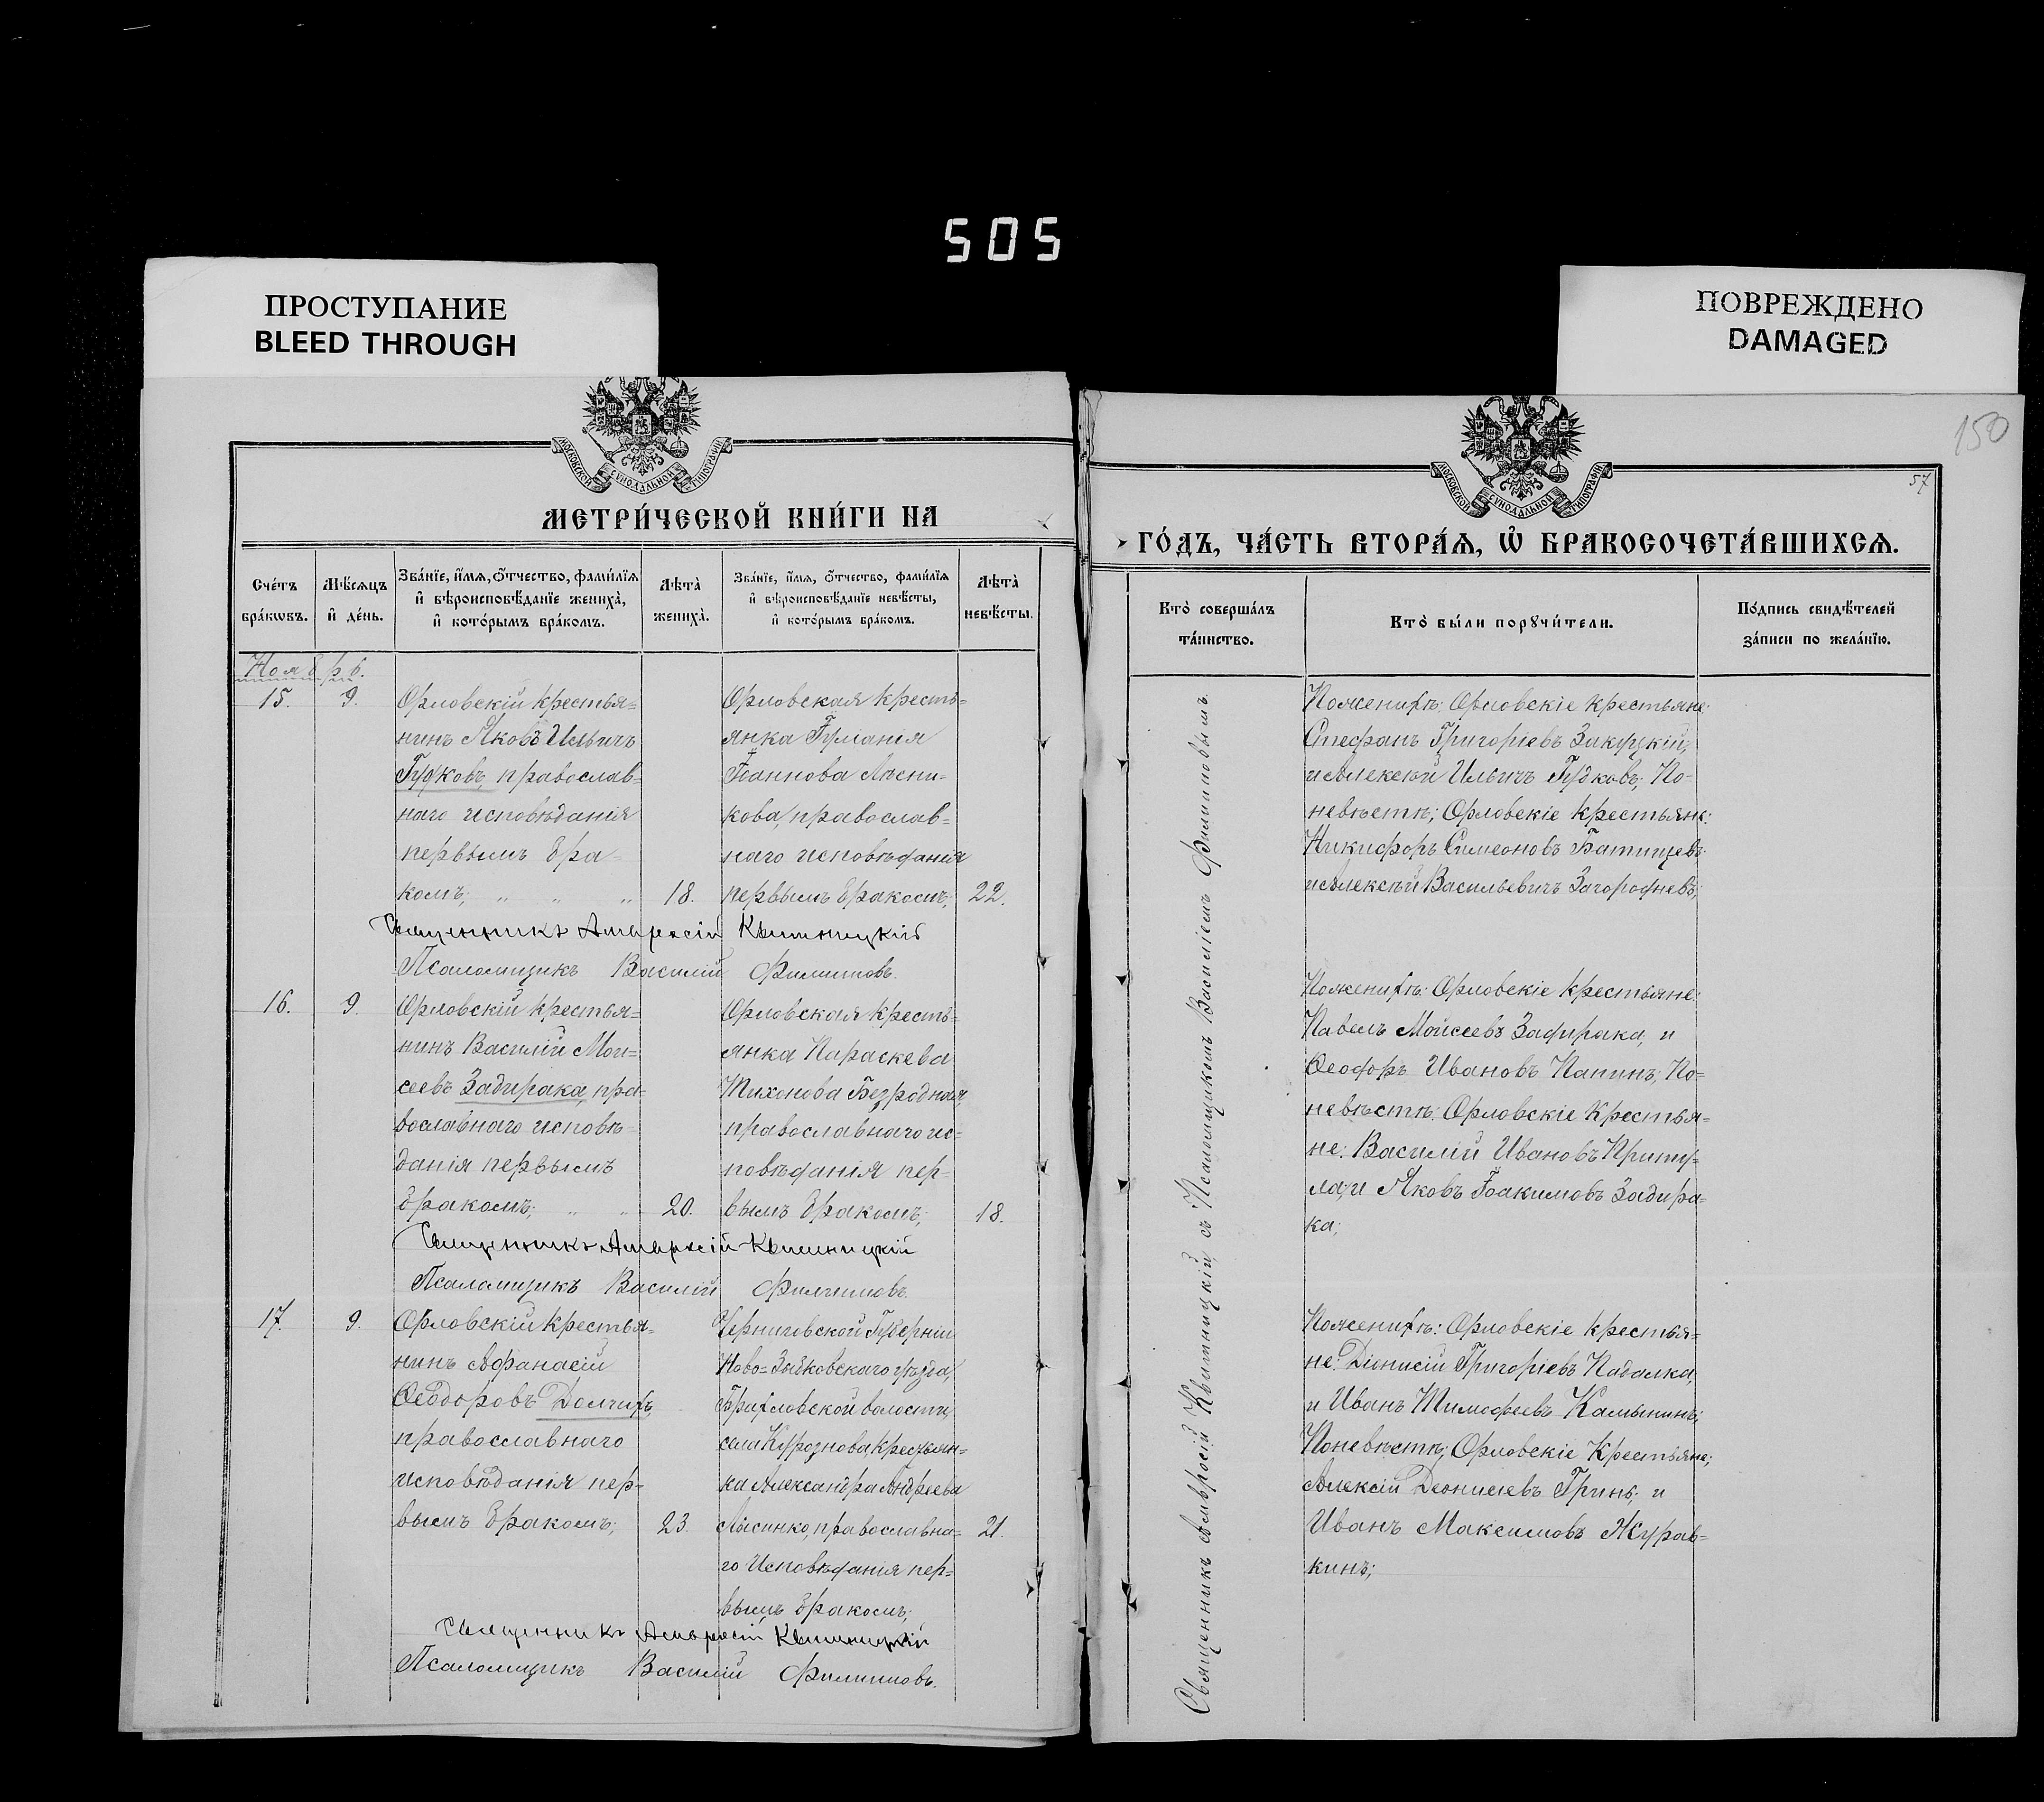 505
ПРОСТУПАНИЕ
BLEED THROUGH
ПОВРЕЖДЕНО
DAMAGED
150
57
МОСКОВСКОЙ СУНОДАЛЬНОЙ ТИПОГРАФІИ
МЕТРИ́ЧЕСКОЙ КНИ́ГИ НА
Сче́тъ бра́кѡвъ.
Мѣ́сяцъ и҆ де́нь.
Зва́нїе, и҆́мѧ, ѻ҆́тчество, фами́лїѧ и҆ вѣроисповѣ́данїе жениха̀, и҆ кото́рымъ бра́комъ.
Лѣта̀ жениха̀.
Зва́нїе, и҆́мѧ, ѻ҆́тчество, фами́лїѧ и҆ вѣроисповѣ́данїе невѣ́сты, и҆ кото́рымъ бра́комъ.
Лѣта̀ невѣ́сты.
Ноябрь.
15.
9.
Орловскій крестья=
нинъ Яковъ Ильичъ
Гудковъ, православ=
наго исповѣданія
первымъ бра=
комъ; „ „ „
18.
Орловская кресть=
янка Гуманія
Іоаннова Лѣсни=
кова, православ=
наго исповѣданія
первымъ бракомъ;
22.
Священникъ Амвросій Квитницкій
Псаломщикъ Василій Филиповъ.
16.
9.
Орловскій крестья=
нинъ Василій Мои=
сеевъ Задирака, пра=
вославнаго исповѣ=
данія первымъ
бракомъ; „ „
20.
Орловская кресть=
янка Параскева
Тихонова Безродная,
православнаго ис=
повѣданія пер=
вымъ бракомъ;
18.
Священникъ Амвросій Квитницкій
Псаломщикъ Василій Филиповъ.
17.
9.
Орловскій крестья=
нинъ Афанасій
Ѳеодоровъ Долгихъ,
православнаго
исповѣданія пер=
вымъ бракомъ;
23.
Черниговской Губерніи
Ново=Зыбковскаго уѣзда,
волости,
села крестьян=
ка Александра Андреева
Лысинко, православна=
го Исповѣданія пер=
вымъ бракомъ;
21.
Священникъ Амвросій Квитницкій
Псаломщикъ Василій Филиповъ.
МОСКОВСКОЙ СУНОДАЛЬНОЙ ТИПОГРАФІИ
ГО́ДЪ, ЧА́СТЬ ВТОРА́Ѧ, Ѡ҆ БРАКОСОЧЕТА́ВШИХСѦ.
Кто̀ соверша́лъ та́инство.
Кто̀ бы́ли порꙋчи́тели.
По́дпись свидѣ́телей за́писи по жела́нїю.
Священникъ Амвросій Квитницкій, съ Псаломщикомъ Василіемъ Филиповымъ.
Поженихѣ: Орловскіе крестьяне:
Стефанъ Григоріевъ Закуцкій,
и Алексѣй Ильичъ Гудковъ; По=
невѣстѣ; Орловскіе крестьяне:
Никифоръ Симеоновъ Батищевъ
и Алексѣй Васильевичъ Загородневъ;
Поженихѣ: Орловскіе крестьяне:
Павелъ Мойсеевъ Задирака, и
Ѳеодоръ Ивановъ Папинъ; По=
невѣстѣ: Орловскіе Крестья=
не: Василій Ивановъ Приту=
ла; и Яковъ Іоакимовъ Задира=
ка;
Поженихѣ: Орловскіе крестья=
не: Діонисій Григоріевъ Падалка,
и Иванъ Тимофеевъ Камынинъ;
Поневѣстѣ; Орловскіе Крестьяне;
Алексій Деонисіевъ Гринь; и
Иванъ Максимовъ Журав=
кинъ;